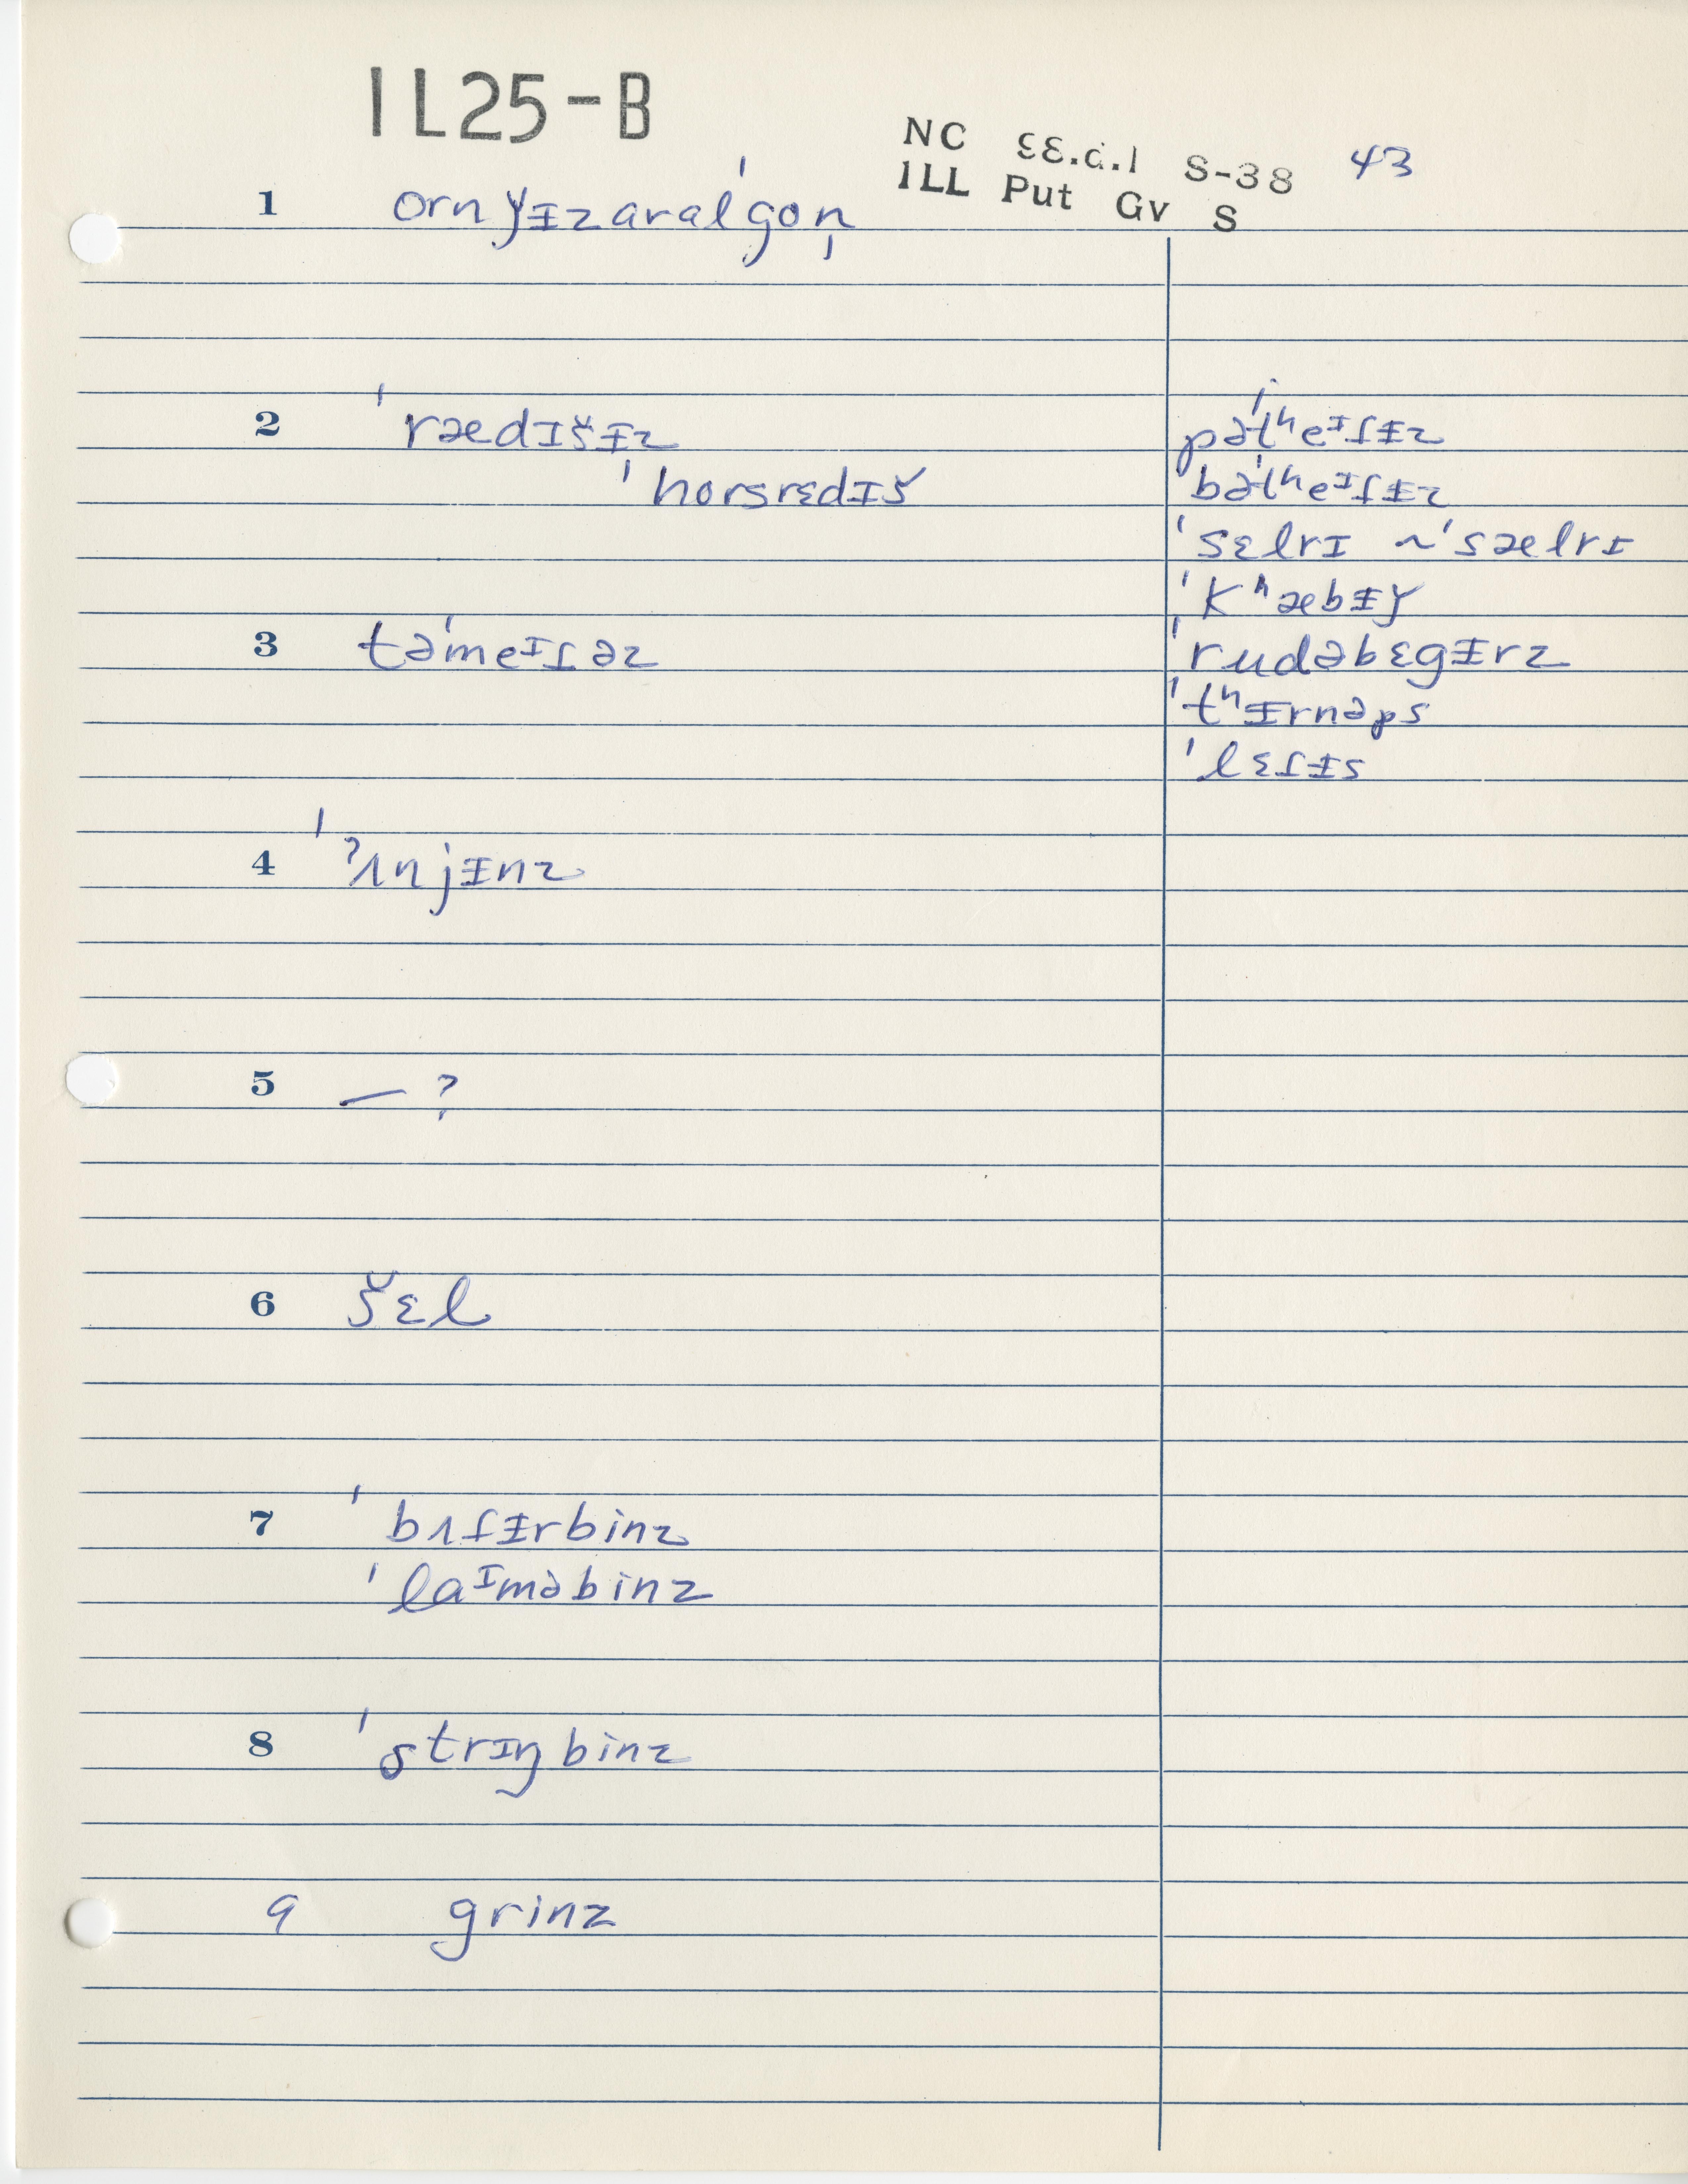 IL25-B
NC 33.d.1 S-38 43
ILL Put Gv S
1 ornǰᵻzaralˈgon̩
2 ˈrædɪšᵻz
ˈhorsrɛdɪš
pəˈtʰeɪɾᵻz
bəˈtʰeɪɾᵻz
ˈsɛlrɪ ~ ˈsælrɪ
ˈkʰæbᵻǰ
ˈrudəbɛgᵻrz
ˈtʰᵻrnəps
ˈlɛɾᵻs
3 təˈmeɪɾəz
4 ˈʔʌnjᵻnz
5 — ?
6 šɛl
7 ˈbʌɾᵻrbinz
ˈlaɪməbinz
8 ˈstrɪŋbinz
9 grinz